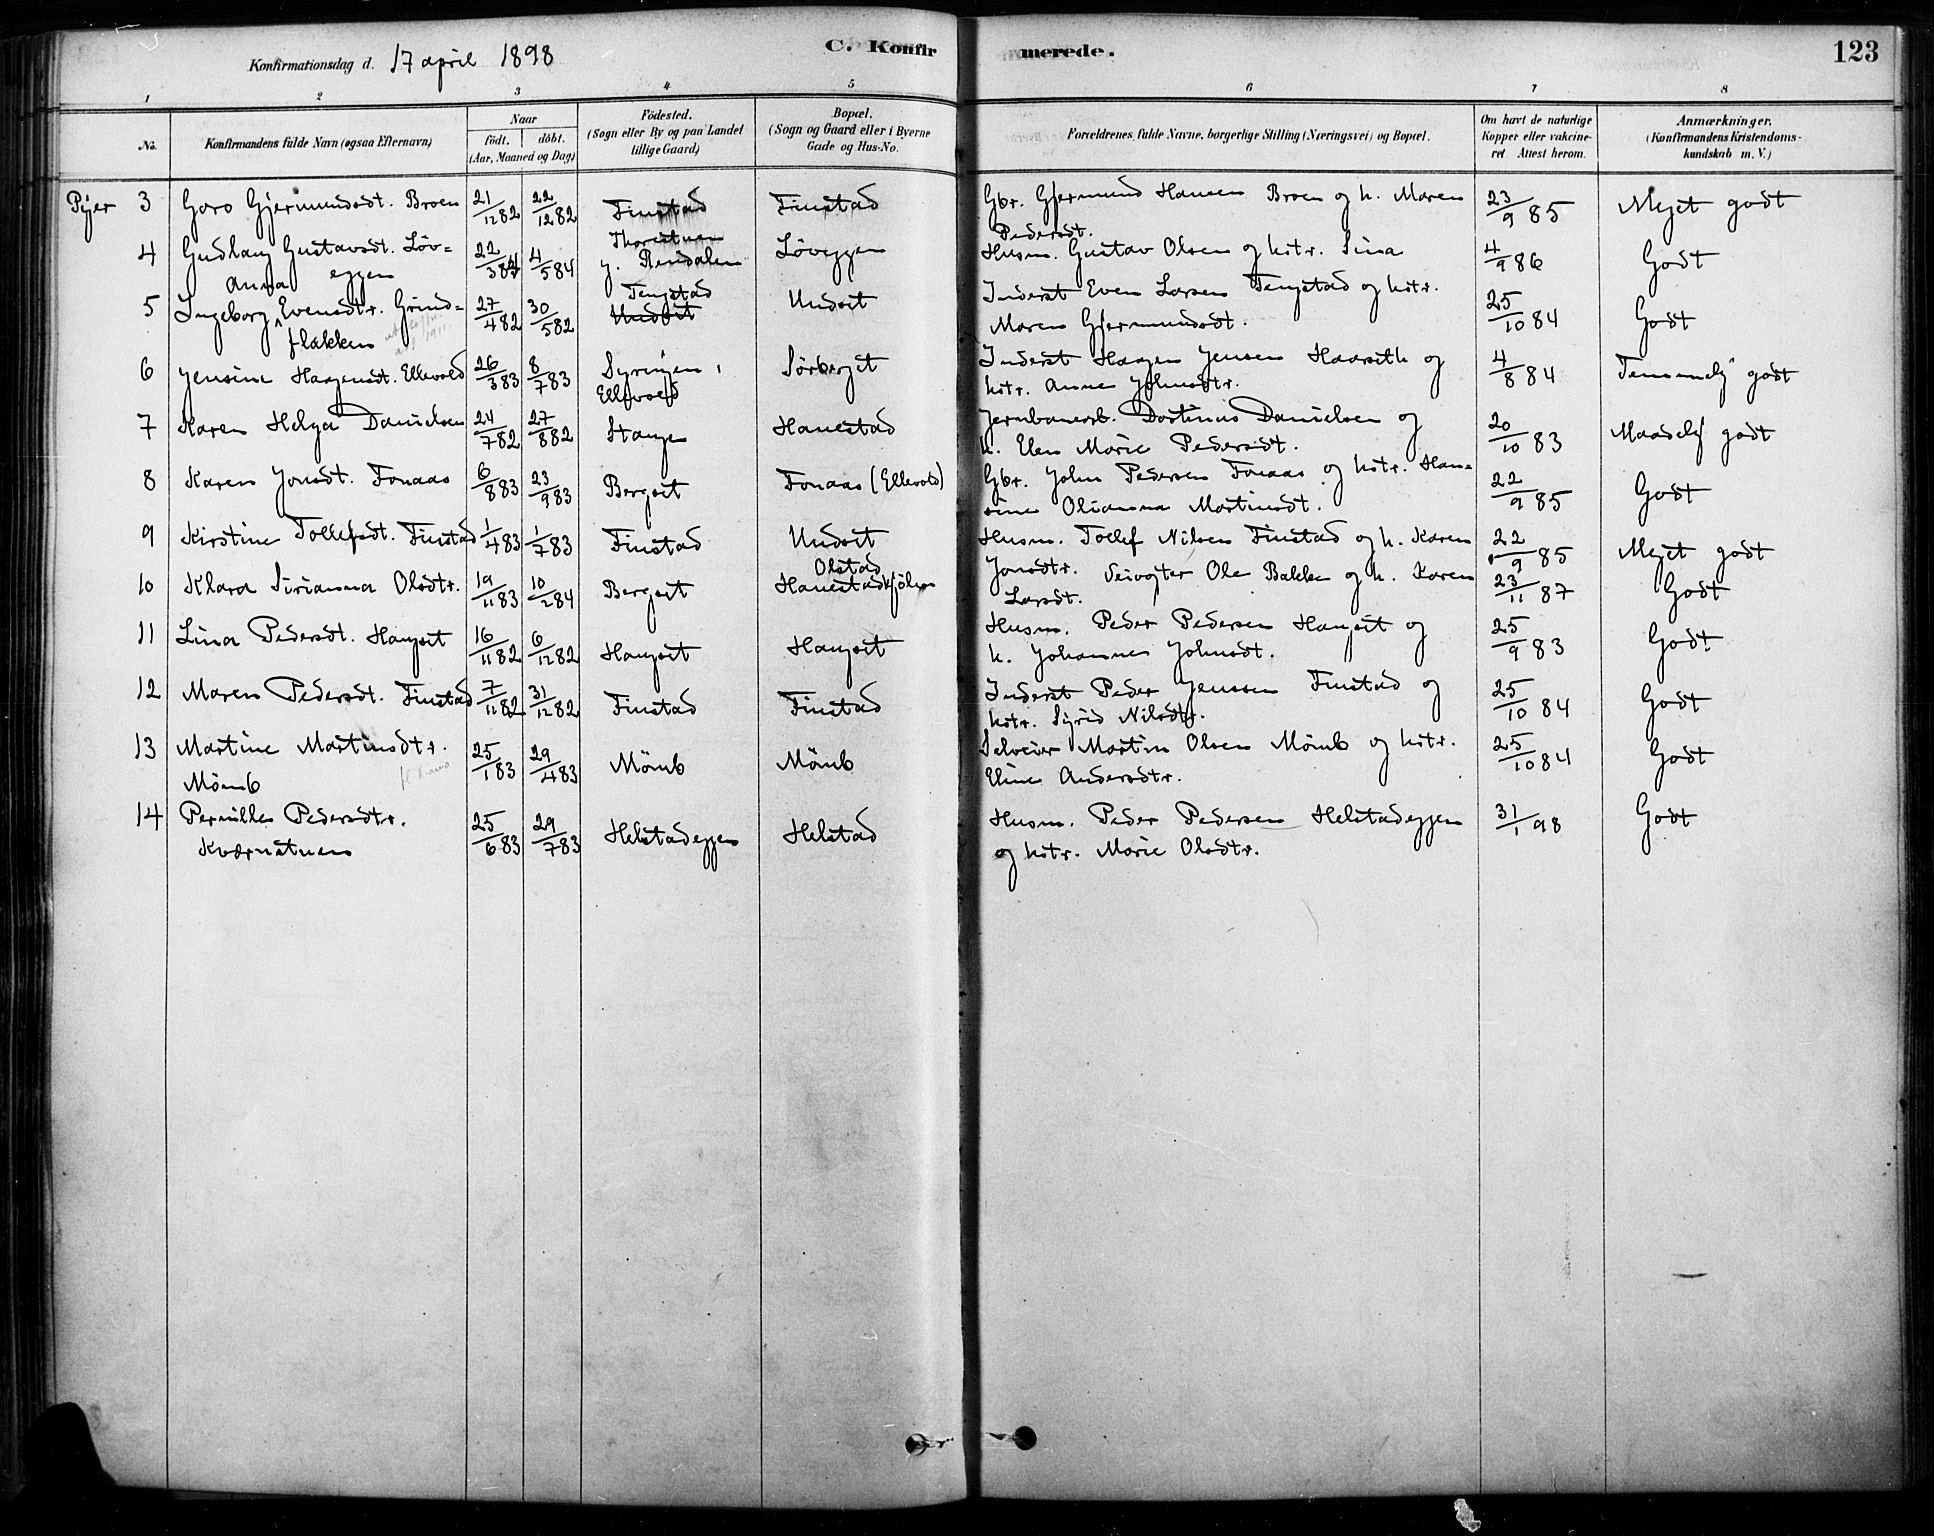 Konfirmationsdag d. 17 april 1898
C. Konfirmerede.
123
1 2 3 4 5 6 7 8
No.
Konfirmandens fulde Navn (ogsaa Efternavn)
Naar
födt. döbt.
(Aar, Maaned og Dag)
Födested.
(Sogn eller By og paa Landet
tillige Gaard)
Bopæl.
(Sogn og Gaard eller i Byerne
Gade og Hus-No.
Forældrenes fulde Navne, borgerlige Stilling (Næringsvei) og Bopæl.
Om havt de naturlige
Kopper eller vakcine-
ret Attest herom.
Anmærkninger,
(Konfirmandens Kristendoms-
kundskab m. V.)
Piger 3 Goro Gjermundsdt. Broen 21/12 82 22/12 82 Finstad Finstad Gbr. Gjermund Hansen Broen og h. Maren 23/9 85 Meget godt
Pedersdt.
4 Gudlaug Gustavsdt. Löv- 22/3 84 4/5 84 Thorestuen Löveggen Husm. Gustav Olsen og hstr. Sina 4/9 86 Godt
eggen y. Rendalen
5 Ingeborg Anna Evensdtr. Grind- 27/4 82 30/5 82 Tengstad Undset Inderst Even Larsen Tengstad og hstr. 25/10 84 Godt
flakken Undset Maren Gjermundsdt.
6 Jensine Haagensdt. Ellevold 26/3 83 8/7 83 Syringen i Sörberget Inderst Haagen Jensen Haarseth og 4/8 84 Temmelig godt
Ellevold hstr. Anne Johnsdtr.
7 Karen Helga Danielsen 24/7 82 27/8 82 Stange Hanestad Jernbanearb. Dortinus Danielsen og 20/10 83 Maadelig godt
h. Elen Marie Pedersdt.
8 Karen Jonsdt. Fonaas 6/8 83 23/9 83 Bergset Fonaas (Ellevold) Gbr. John Pedersen Fonaas og hstr. Han- 22/9 85 Godt
sine Olianna Martinsdt.
9 Kirstine Tollefsdt. Finstad 1/4 83 1/7 83 Finstad Undset Husm. Tollef Nilsen Finstad og h. Karen 22/9 85 Meget godt
Jonsdtr.
10 Klara Sirianna Olsdtr. 19/11 83 10/2 84 Bergset Olstad Hanestadkjölen Veivogter Ole Bakken og h. Karen 23/11 87 Godt
Larsdt.
11 Lina Pedersdt. Haugset 16/11 82 6/12 82 Haugset Haugset Husm. Peder Pedersen Haugset og 25/9 83 Godt
h. Johannes Johnsdt.
12 Maren Pedersdt. Finstad 7/11 82 31/12 82 Finstad Finstad Inderst Peder Jenssen Finstad og 25/10 84 Godt
hstr. Sigrid Nilsdtr.
13 Martine Martinsdtr. 25/1 83 29/4 83 Mömb Mömb Selveier Martin Olsen Mömb og hstr. 25/10 84 Godt
Mömb Eline Andersdtr.
14 Pernille Pedersdtr. 25/6 83 29/7 83 Helstadeggen Helstad Husm. Peder Pedersen Helstadeggen 31/1 98 Godt
Kværnstuen og hstr. Marie Olsdtr.